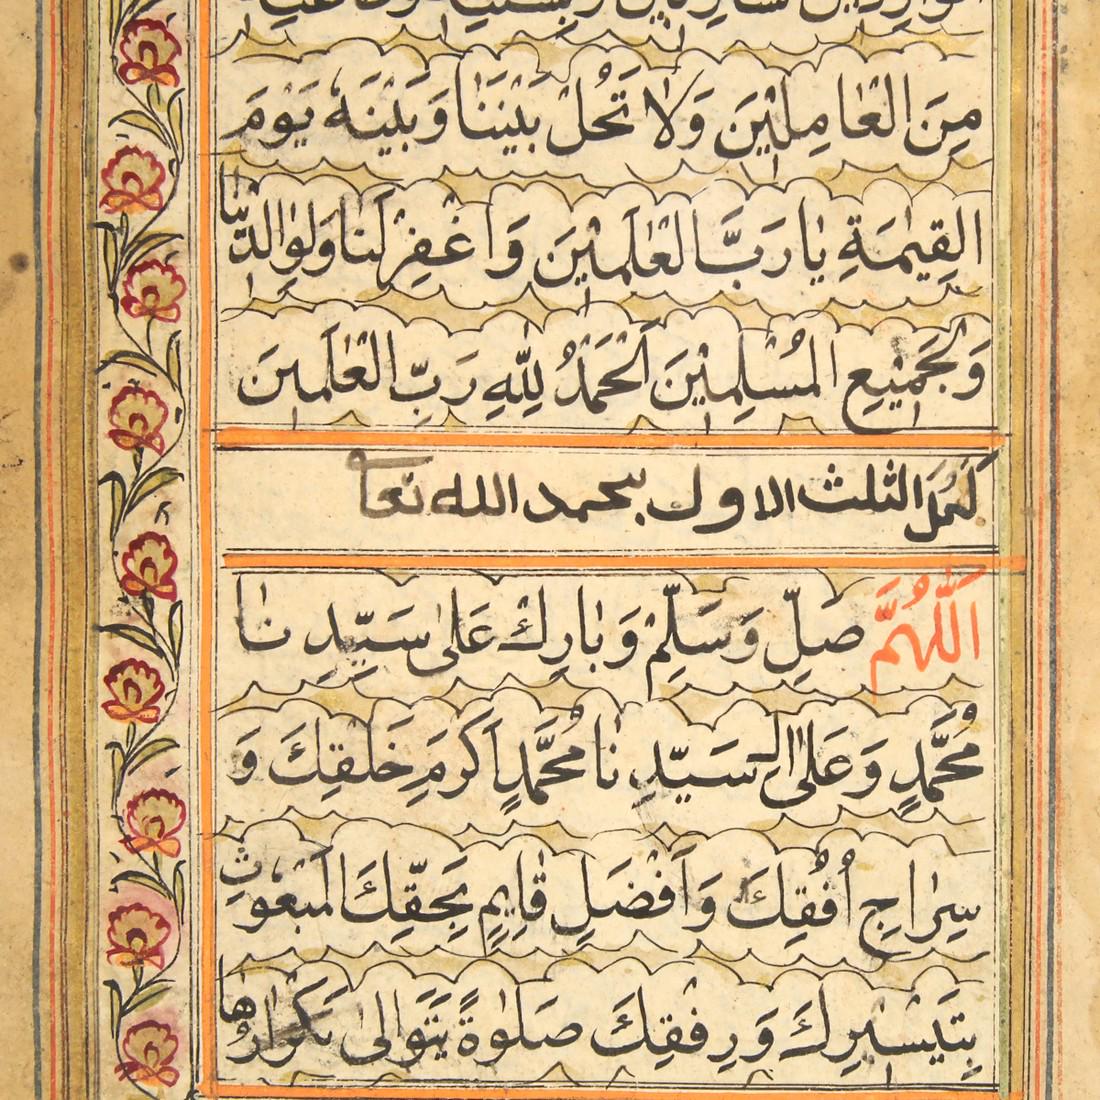 مِنَ الْعَامِلِيْنَ وَلَا تَحُلْ بَيْنَنَا وَبَيْنَهُ يَوْمَ
الْقِيٰمَةِ يَا رَبَّ الْعٰلَمِيْنَ وَاغْفِرْ لَنَا وَلِوَالِدَيْنَا
وَلِجَمِيْعِ الْمُسْلِمِيْنَ اَلْحَمْدُ لِلّٰهِ رَبِّ الْعٰلَمِيْنَ
كَمُلَ الثلث الاول بحمد الله تعا
اَللّٰهُمَّ صَلِّ وَسَلِّمْ وَبَارِكْ عَلٰى سَيِّدِنَا
مُحَمَّدٍ وَعَلٰى اٰلِ سَيِّدِنَا مُحَمَّدٍ اَكْرَمِ خَلْقِكَ وَ
سِرَاجِ اُفُقِكَ وَاَفْضَلِ قَايِمٍ بِحَقِّكَ الْمَبْعُوْثِ
بِتَيْسِيْرِكَ وَرِفْقِكَ صَلٰوةً يَتَوَالٰى تَكْرَارُهَا